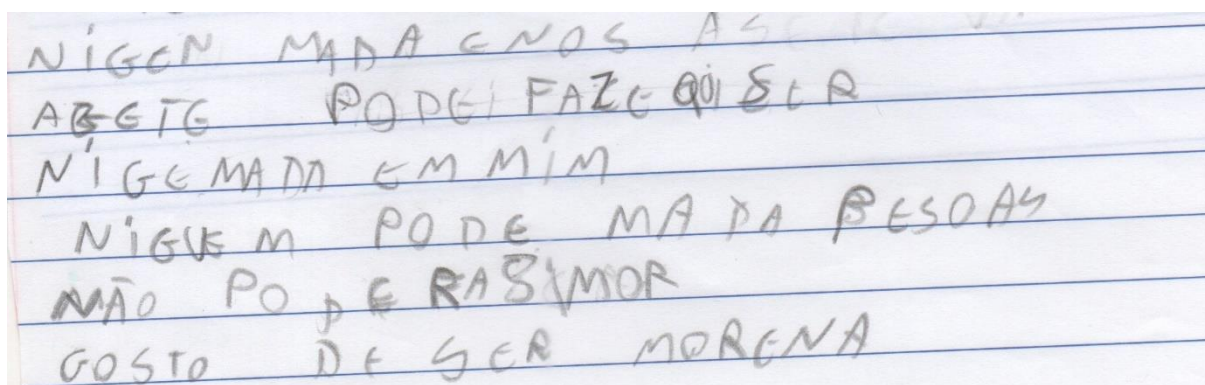 NIGEN MADA ENOS
ABETE PODEI FAZE QUISER
NIGEMADA EM MIM
NIGUEM PODE MADA PESOAS
MÃO PODE RASIMOR
GOSTO DE SER MORENA